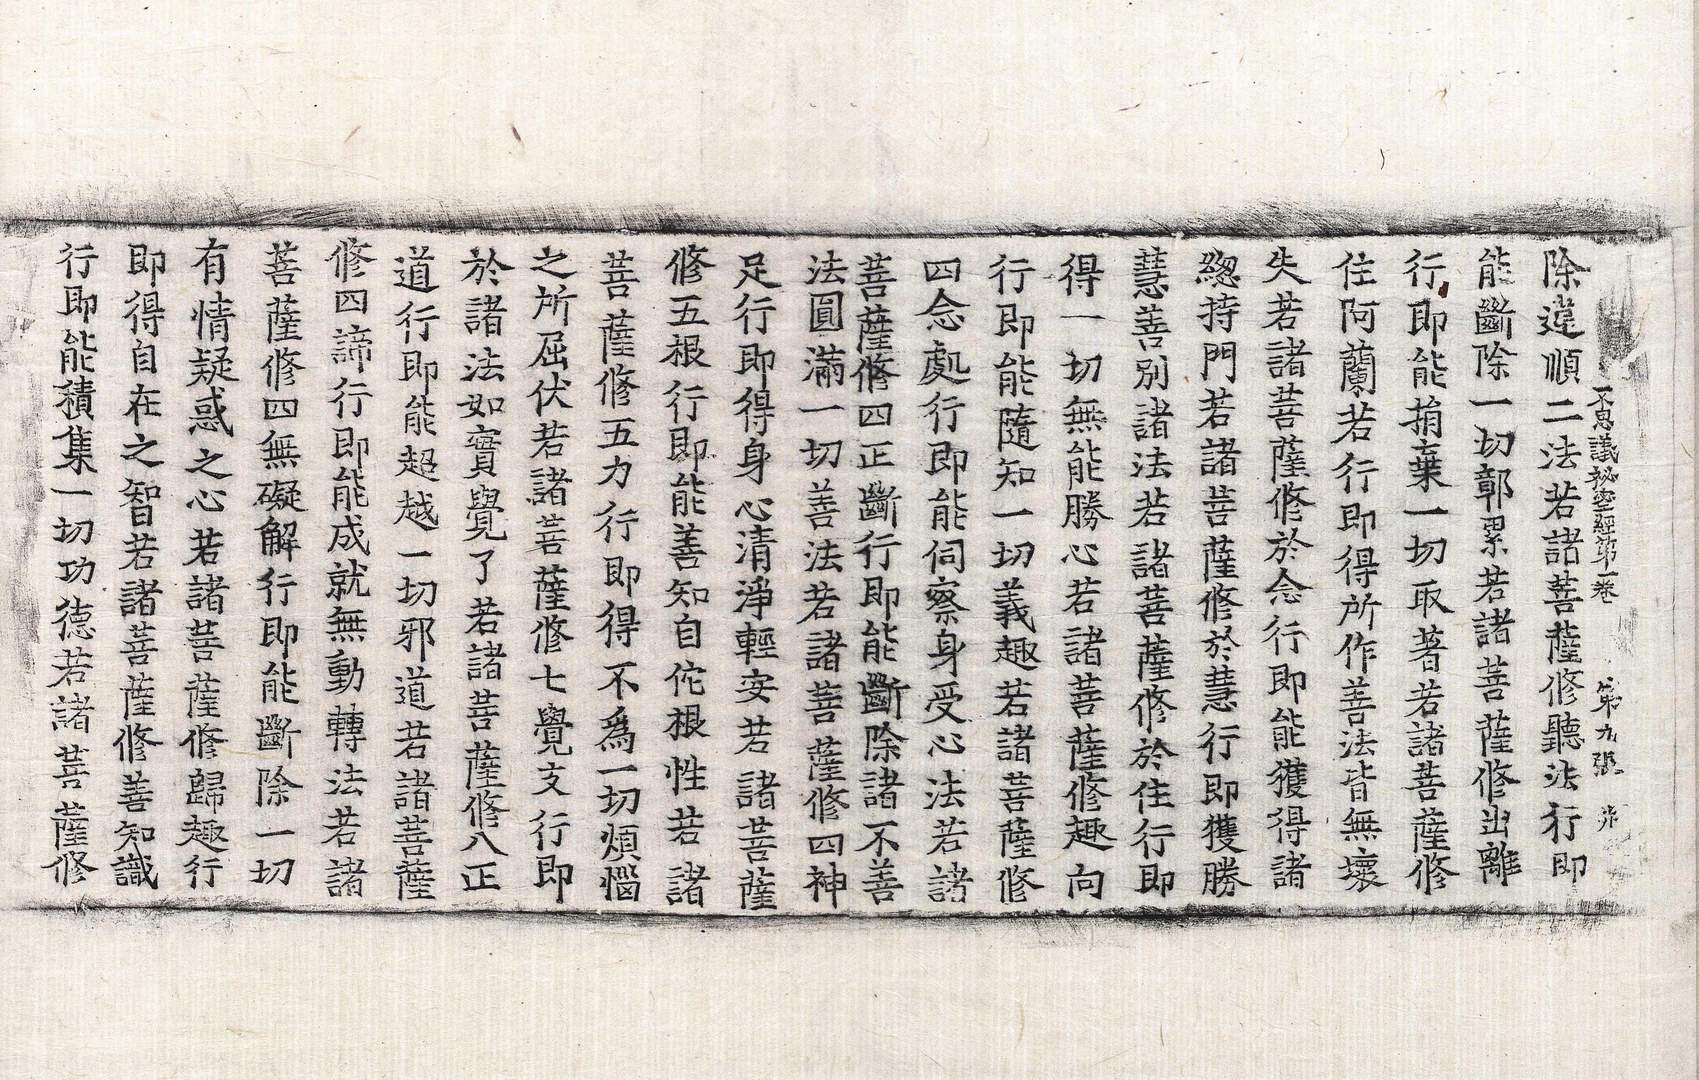 不思議秘密經第一卷　第九張　光
除違順二法若諸菩薩修聽法行即
能斷除一切鄣累若諸菩薩修出離
行即能捐棄一切取著若諸菩薩修
住阿蘭若行即得所作善法皆無壞
失若諸菩薩修於念行即能獲得諸
總持門若諸菩薩修於慧行即獲勝
慧善別諸法若諸菩薩修於住行即
得一切無能勝心若諸菩薩修趣向
行即能隨知一切義趣若諸菩薩修
四念處行即能伺察身受心法若諸
菩薩修四正斷行即能斷除諸不善
法圓滿一切善法若諸菩薩修四神
足行即得身心清淨輕安若諸菩薩
修五根行即能善知自佗根性若諸
菩薩修五力行即得不為一切煩惱
之所屈伏若諸菩薩修七覺支行即
於諸法如實覺了若諸菩薩修八正
道行即能超越一切邪道若諸菩薩
修四諦行即能成就無動轉法若諸
菩薩修四無礙解行即能斷除一切
有情疑惑之心若諸菩薩修歸趣行
即得自在之智若諸菩薩修善知識
行即能積集一切功德若諸菩薩修